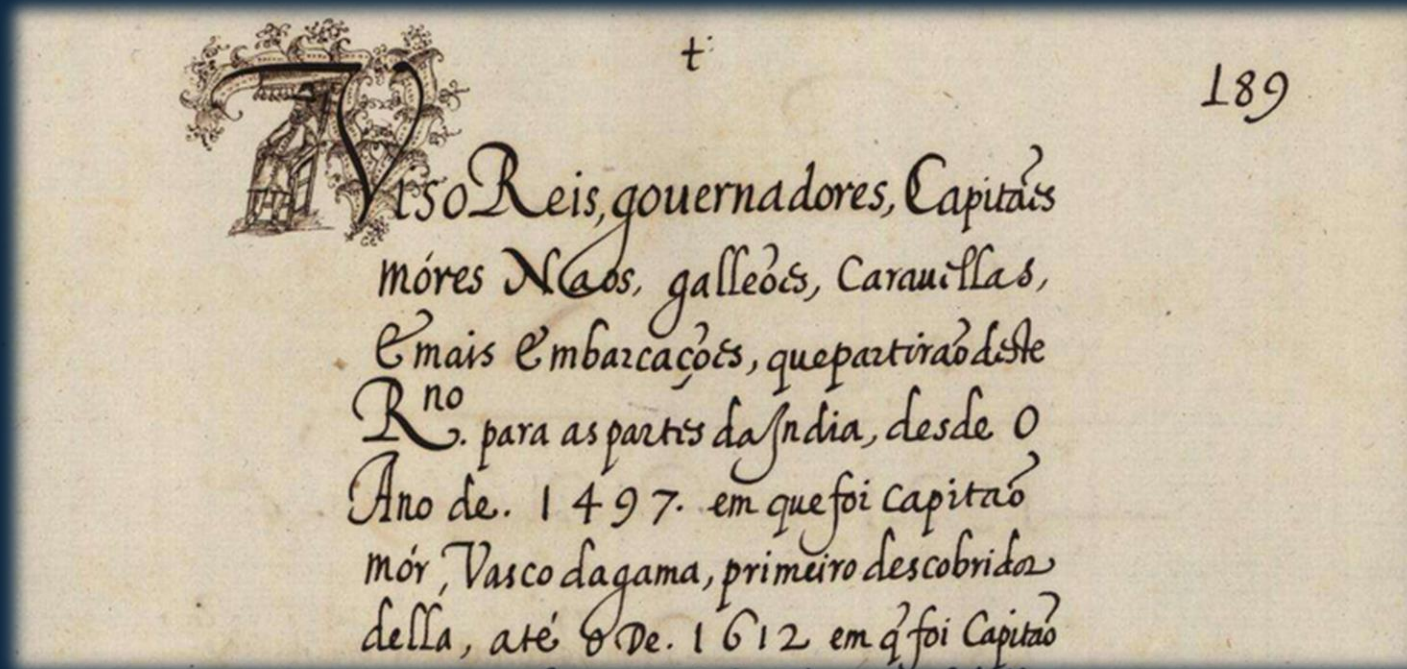 t
189
Viso Reis, gouernadores, Capitães
móres Naos, galleões, Carauellas,
E mais Embarcações, que partirão deste
Rno. para as partes da India, desde O
Ano de. 1497. em que foi capitaõ
mór, Vasco dagama, primeiro descobridor
della, até o De. 1612 em q̃ foi Capitaõ